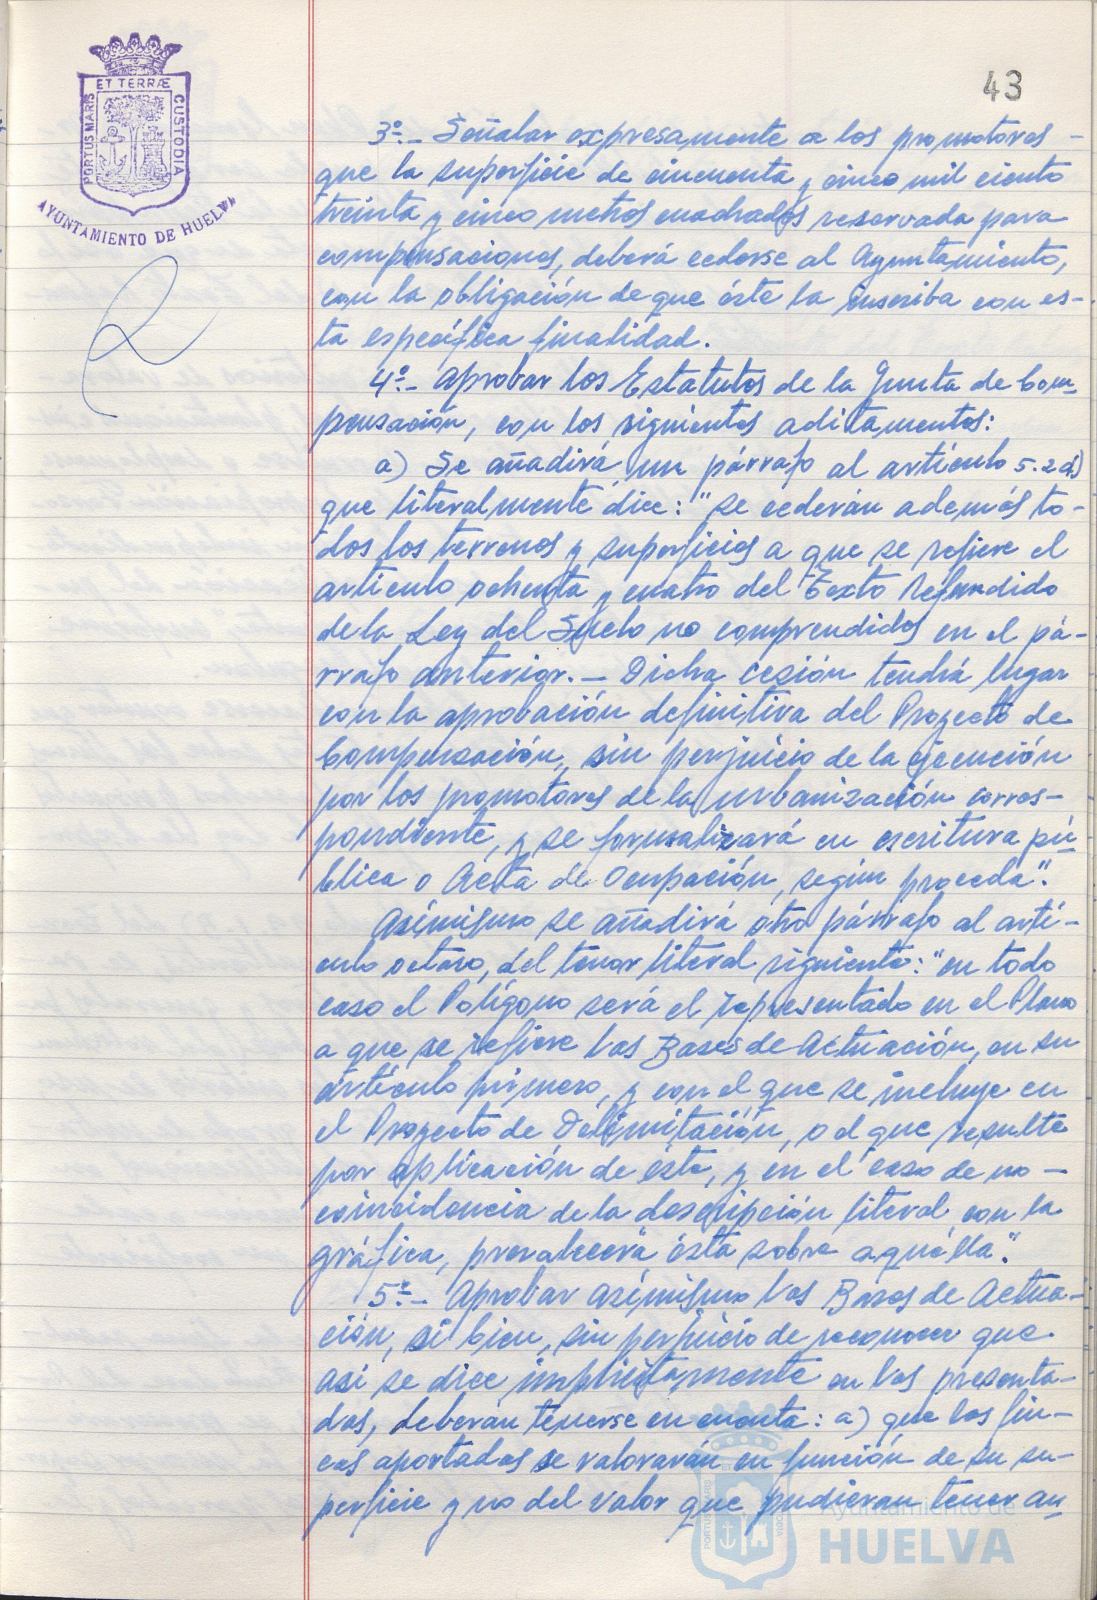 43
ET TERRÆ
PORTUS MARIS
CUSTODIA
AYUNTAMIENTO DE HUELVA
3º.- Señalar expresamente a los promotores -
que la superficie de cincuenta y cinco mil ciento
treinta y cinco metros cuadrados reservada para
compensaciones, deberá cederse al Ayuntamiento,
con la obligación de que éste la inscriba con es-
ta específica finalidad.
4º.- Aprobar los Estatutos de la Junta de Com-
pensación, con los siguientes aditamentos:
a) Se añadirá un párrafo al artículo 5.2 d)
que literalmente dice: "se cederán además to-
dos los terrenos y superficies a que se refiere el
artículo ochenta y cuatro del Texto Refundido
de la Ley del Suelo no comprendidos en el pá-
rrafo anterior.- Dicha cesión tendrá lugar
con la aprobación definitiva del Proyecto de
Compensación, sin perjuicio de la ejecución
por los promotores de la urbanización corres-
pondiente, y se formalizará en escritura pú-
blica o Acta de Ocupación, según proceda".
Asímismo se añadirá otro párrafo al artí-
culo octavo, del tenor literal siguiente: "en todo
caso el Polígono será el representado en el Plano
a que se refiere las Bases de Actuación, en su
artículo primero, y con el que se incluye en
el Proyecto de Delimitación, o el que resulte
por aplicación de éste, y en el caso de no -
coincidencia de la descripción literal con la
gráfica, prevalecerá ésta sobre aquélla".
5º.- Aprobar asímismo las Bases de Actua-
ción, si bien, sin perjuicio de reconocer que
así se dice implícitamente en las presenta-
das, deberán tenerse en cuenta: a) que las fin-
cas aportadas se valorarán en función de su su-
perficie y no del valor que pudieran tener an
Ayuntamiento de
HUELVA